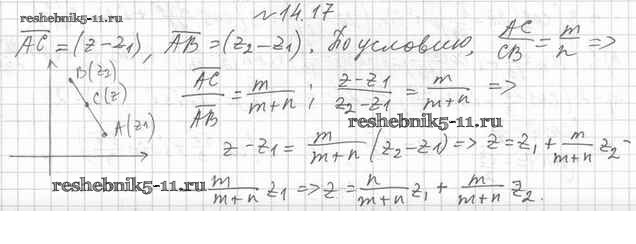 №14.17
reshebnik5-11.ru
AC = (z-z1), AB = (z2-z1). По условию, AC/CB = m/n =>
B(z2)
C(z)
A(z1)
AC/AB = m/(m+n) ; (z-z1)/(z2-z1) = m/(m+n) =>
reshebnik5-11.ru
z-z1 = m/(m+n) (z2-z1) => z = z1 + m/(m+n) z2 -
reshebnik5-11.ru
m/(m+n) z1 => z = n/(m+n) z1 + m/(m+n) z2.